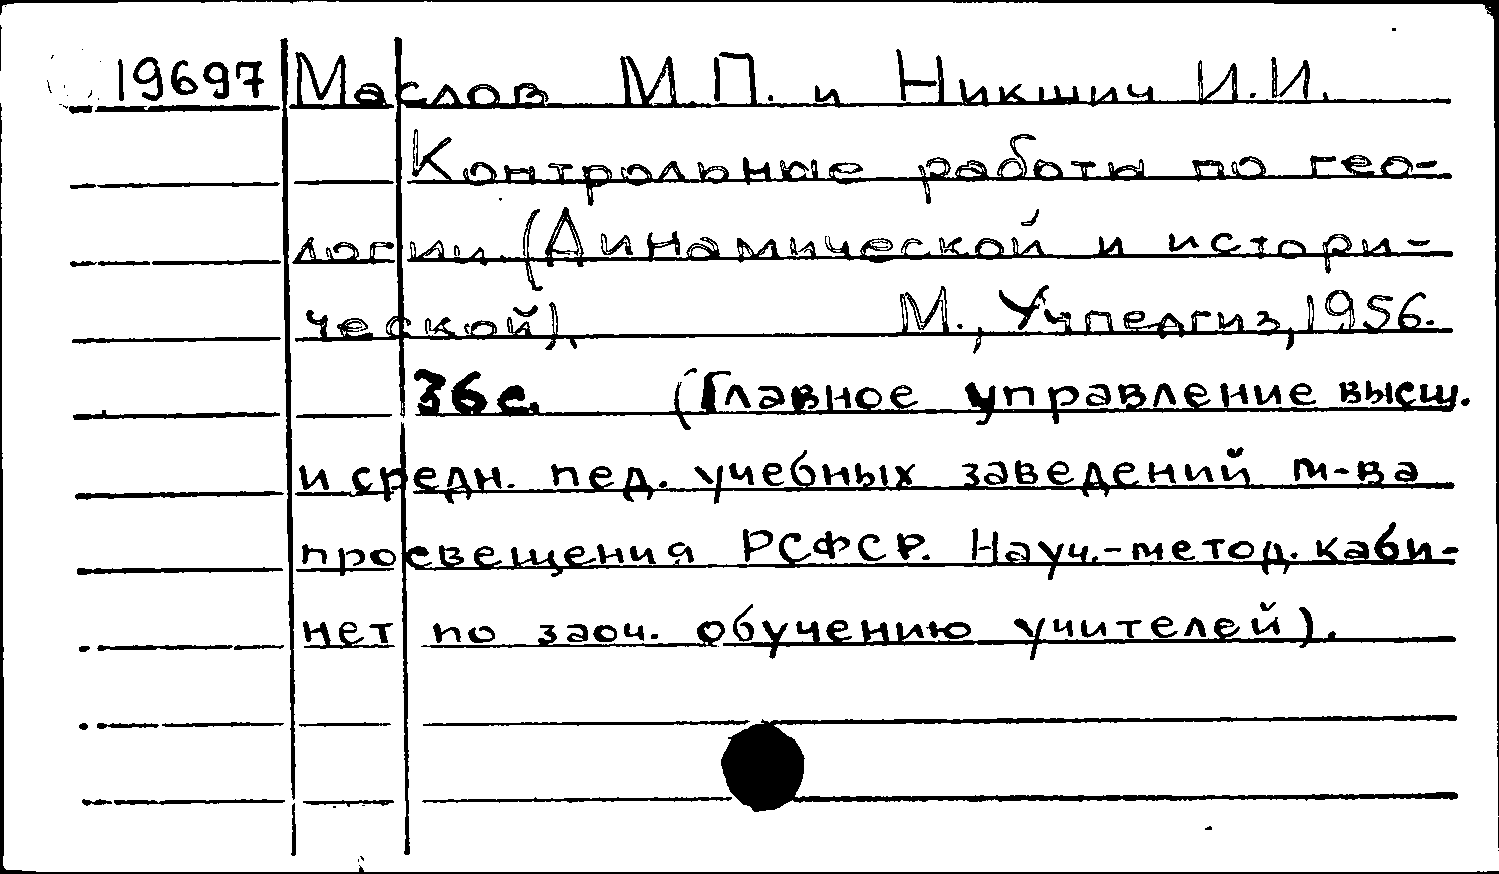 19697 Маслов М.П. и Никшич И.И.
Контрольные работы по гео-
логии. (Динамической и истори-
ческой). М., Учпедгиз, 1956.
36 с. (Главное управление высш.
и средн. пед. учебных заведений м-ва
просвещения РСФСР. Науч.-метод. каби-
нет по заоч. обучению учителей).